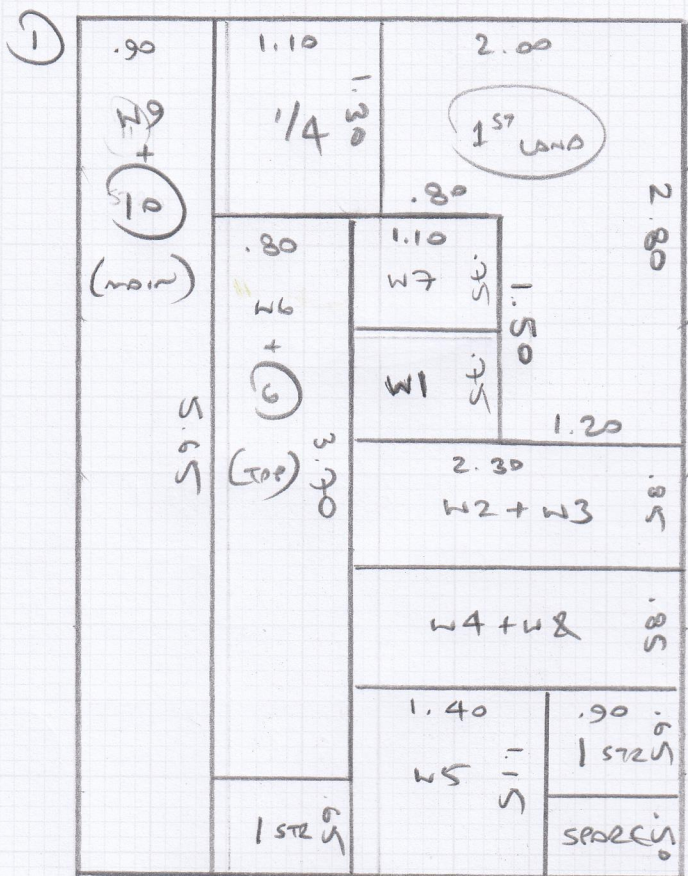 1
.90
W9
+
10
(MAIN)
5.65
1.10
1.30
1/4
2.00
1ST LAND
2.80
.80
.80
W6
+
6
(TOP)
3.40
1.10
W7
.75
1.50
W1
.75
1.20
2.30
.85
W2 + W3
W4 + W8
.85
1.40
W5
1.15
.90
.65
1 STR
SPARE .50
1 STR .65